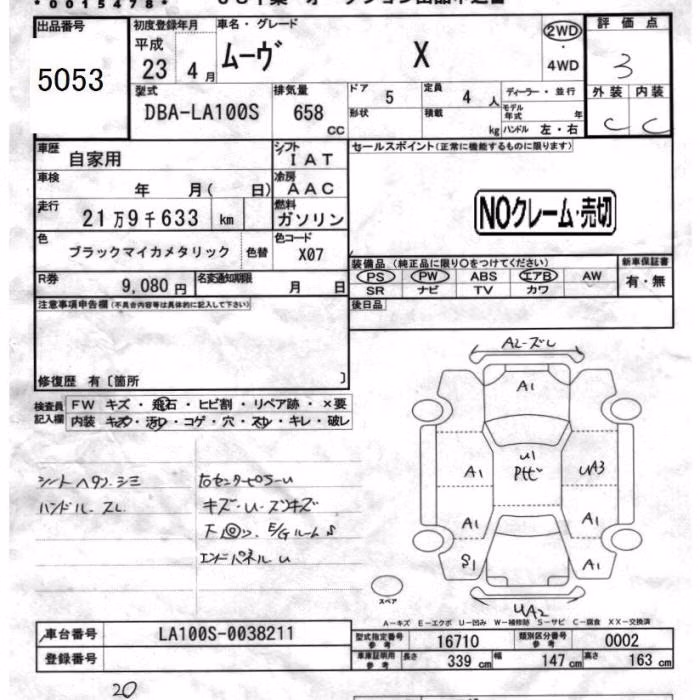 ・0015478・
出品番号 初度登録年月 車名・グレード 評価点
5053
平成 23 4月 ムーヴ X 2WD・4WD 3
型式 DBA-LA100S 排気量 658 CC
ドア 5 定員 4人 ディーラー・並行 外装 内装
形状 積載 kg モデル年式 年 ハンドル 左・右 C C
車歴 自家用 シフト IAT セールスポイント(正常に機能するものに限ります)
車検 年 月( 日) 冷房 AAC
NOクレーム・売切
走行 21万9千633 km 燃料 ガソリン
色 ブラックマイカメタリック 色替 色コード X07
装備品 (純正品に限り○をつけてください) 新車保証書
PS PW ABS エアB AW 有・無
SR ナビ TV カワ
R券 9,080円 名変通知期限 月 日
後日品
注意事項申告欄 (不具合内容等は具体的に記入して下さい)
修復歴 有〔箇所 〕
検査員記入欄 FW キズ・飛石・ヒビ割・リペア跡・×要
内装 キズ・汚れ・コゲ・穴・スレ・キレ・破レ
シートヘタリ.シミ
ハンドル.スレ
右センターピラーU
キズ・U・スリキズ
E/Gルーム S
エンドパネル U
AL-ズレ
A1
U1
A1 UA3
A1 A1
S1 A1
UA2
スペア
A-キズ E-エクボ U-凹み W-補修跡 S-サビ C-腐食 XX-交換済
車台番号 LA100S-0038211 型式指定番号 参考 16710 類別区分番号 参考 0002
登録番号 車庫証明用 参考 長さ 339 cm 幅 147 cm 高さ 163 cm
20